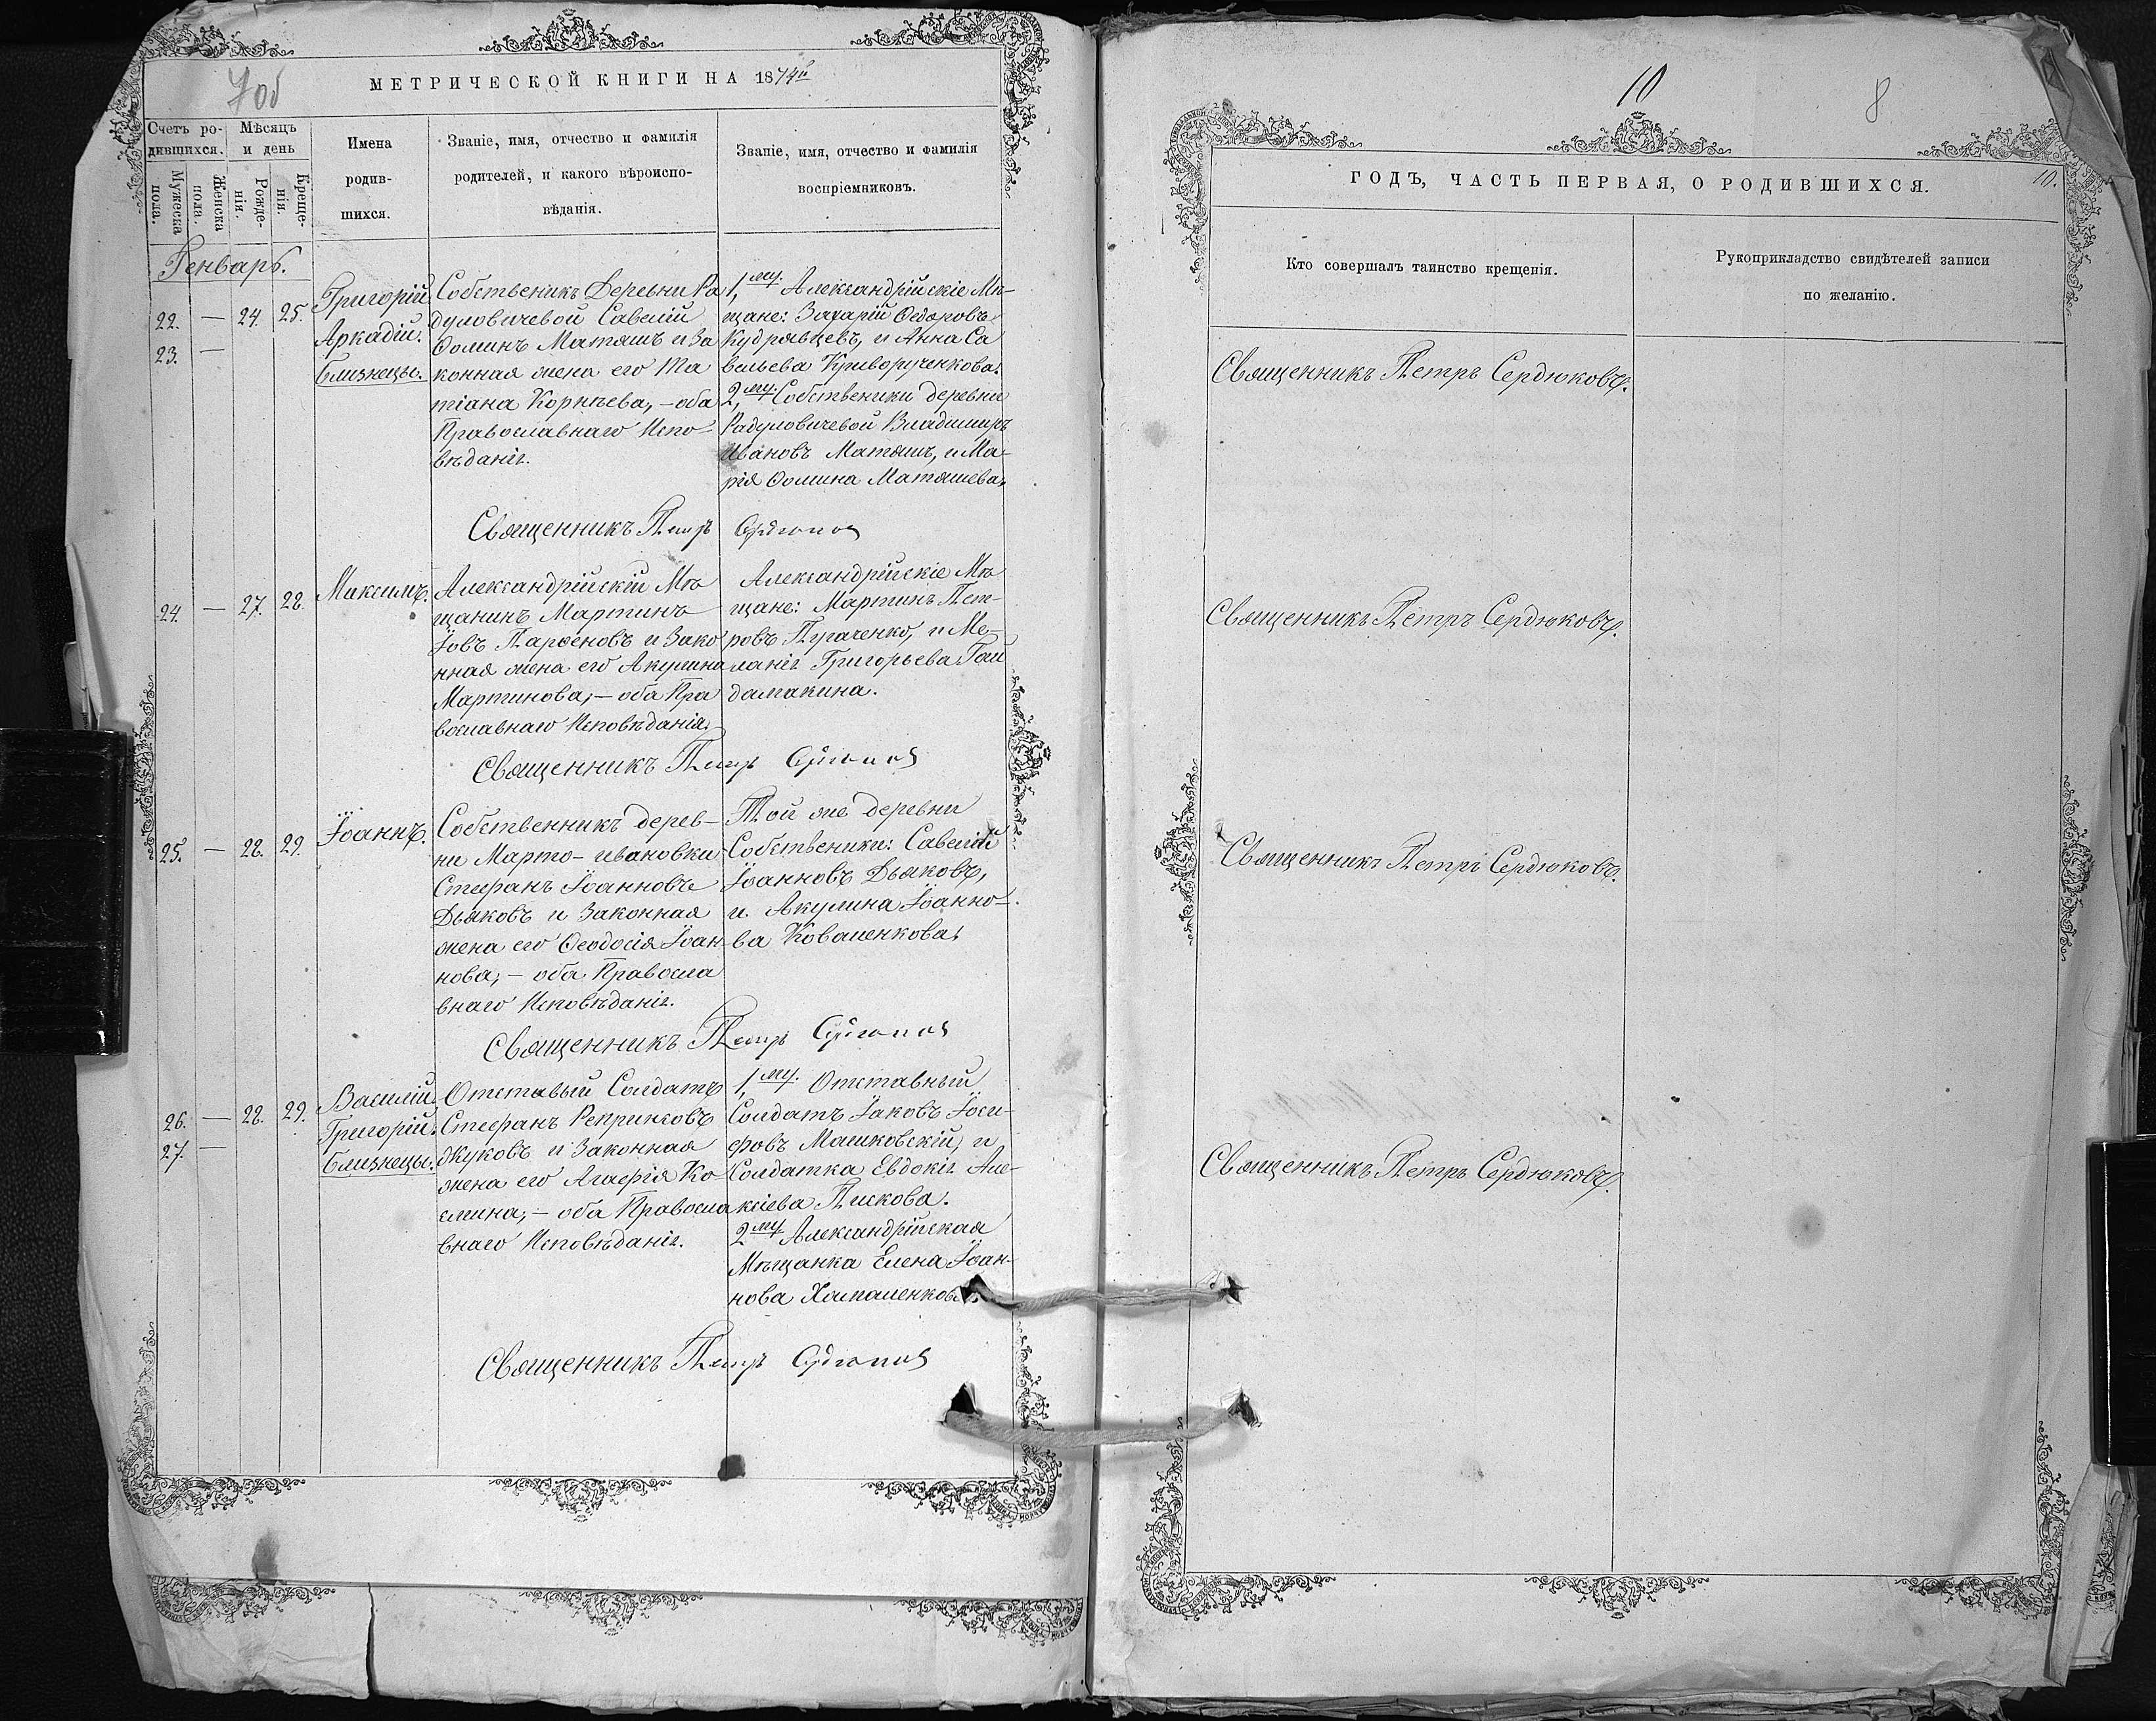 7об
МЕТРИЧЕСКОЙ КНИГИ НА 1874й
Счетъ ро-
дившихся.
Мужеска
пола.
Женска
пола.
Мѣсяцъ
и день
Рожде-
нія.
Креще-
нія.
Имена
родив-
шихся.
Званіе, имя, отчество и фамилія
родителей, и какого вѣроиспо-
вѣданія.
Званіе, имя, отчество и фамилія
воспріемниковъ.
Генварь.
22. — 24. 25.
23. —
Григорій
Аркадій.
Близнецы.
Собственикъ Деревни Ра
дуловичевой Савелій
Ѳоминъ Матяшъ и За
конная жена его Та
тіана Корнѣева, — оба
Православнаго Испо-
вѣданія.
1,му. Александрійскіе Мѣ-
щане: Захарій Ѳедоровъ
Кудрявцевъ, и Анна Са
вельева Криворученкова.
2,му. Собственики деревни
Радуловичевой Владимиръ
Ивановъ Матяшъ, и Ма-
рія Ѳомина Матяшева,
Священникъ Петръ
24. — 27. 28.
Максимъ.
Александрійскій Мѣ
щанинъ Мартинъ
Іовъ Парѳеновъ и Зако
нная жена его Акулина
Мартинова, — оба Пра
вославнаго Исповѣданія.
Александрійскіе Мѣ
щане: Мартинъ Пет-
ровъ Пугаченко, и Ме-
ланія Григорьева Гай
дамакина.
Священникъ Петръ
25. — 28. 29.
Іоаннъ.
Собственникъ дерев-
ни Марто-ивановки
Стефанъ Іоанновъ
Дьяковъ и Законная
жена его Ѳеодосія Іоан-
нова; — оба Правосла
внаго Исповѣданія.
Той же деревни
Собственики: Савелій
Іоанновъ Дьяковъ,
и Акулина Іоанно-
ва Коваленкова.
Священникъ Петръ
26. — 28. 29.
27. —
Василій
Григорій.
Близнецы.
Отставый Солдатъ
Стефанъ
Жуковъ и Законная
жена его Агафія Ко-
смина; — оба Правосла
внаго Исповѣданія.
1,му. Отставный
Солдатъ Іаковъ Іоси-
фовъ Машковскій, и
Солдатка Евдокія Але-
ксіева Пискова.
2му Александрійская
Мѣщанка Елена Іоан-
нова
Священникъ Петръ
10
8
10.
ГОДЪ, ЧАСТЬ ПЕРВАЯ, О РОДИВШИХСЯ.
Кто совершалъ таинство крещенія.
Рукоприкладство свидѣтелей записи
по желанію.
Священникъ Петръ Сердюковъ.
Священникъ Петръ Сердюковъ.
Священникъ Петръ Сердюковъ.
Священникъ Петръ Сердюковъ.